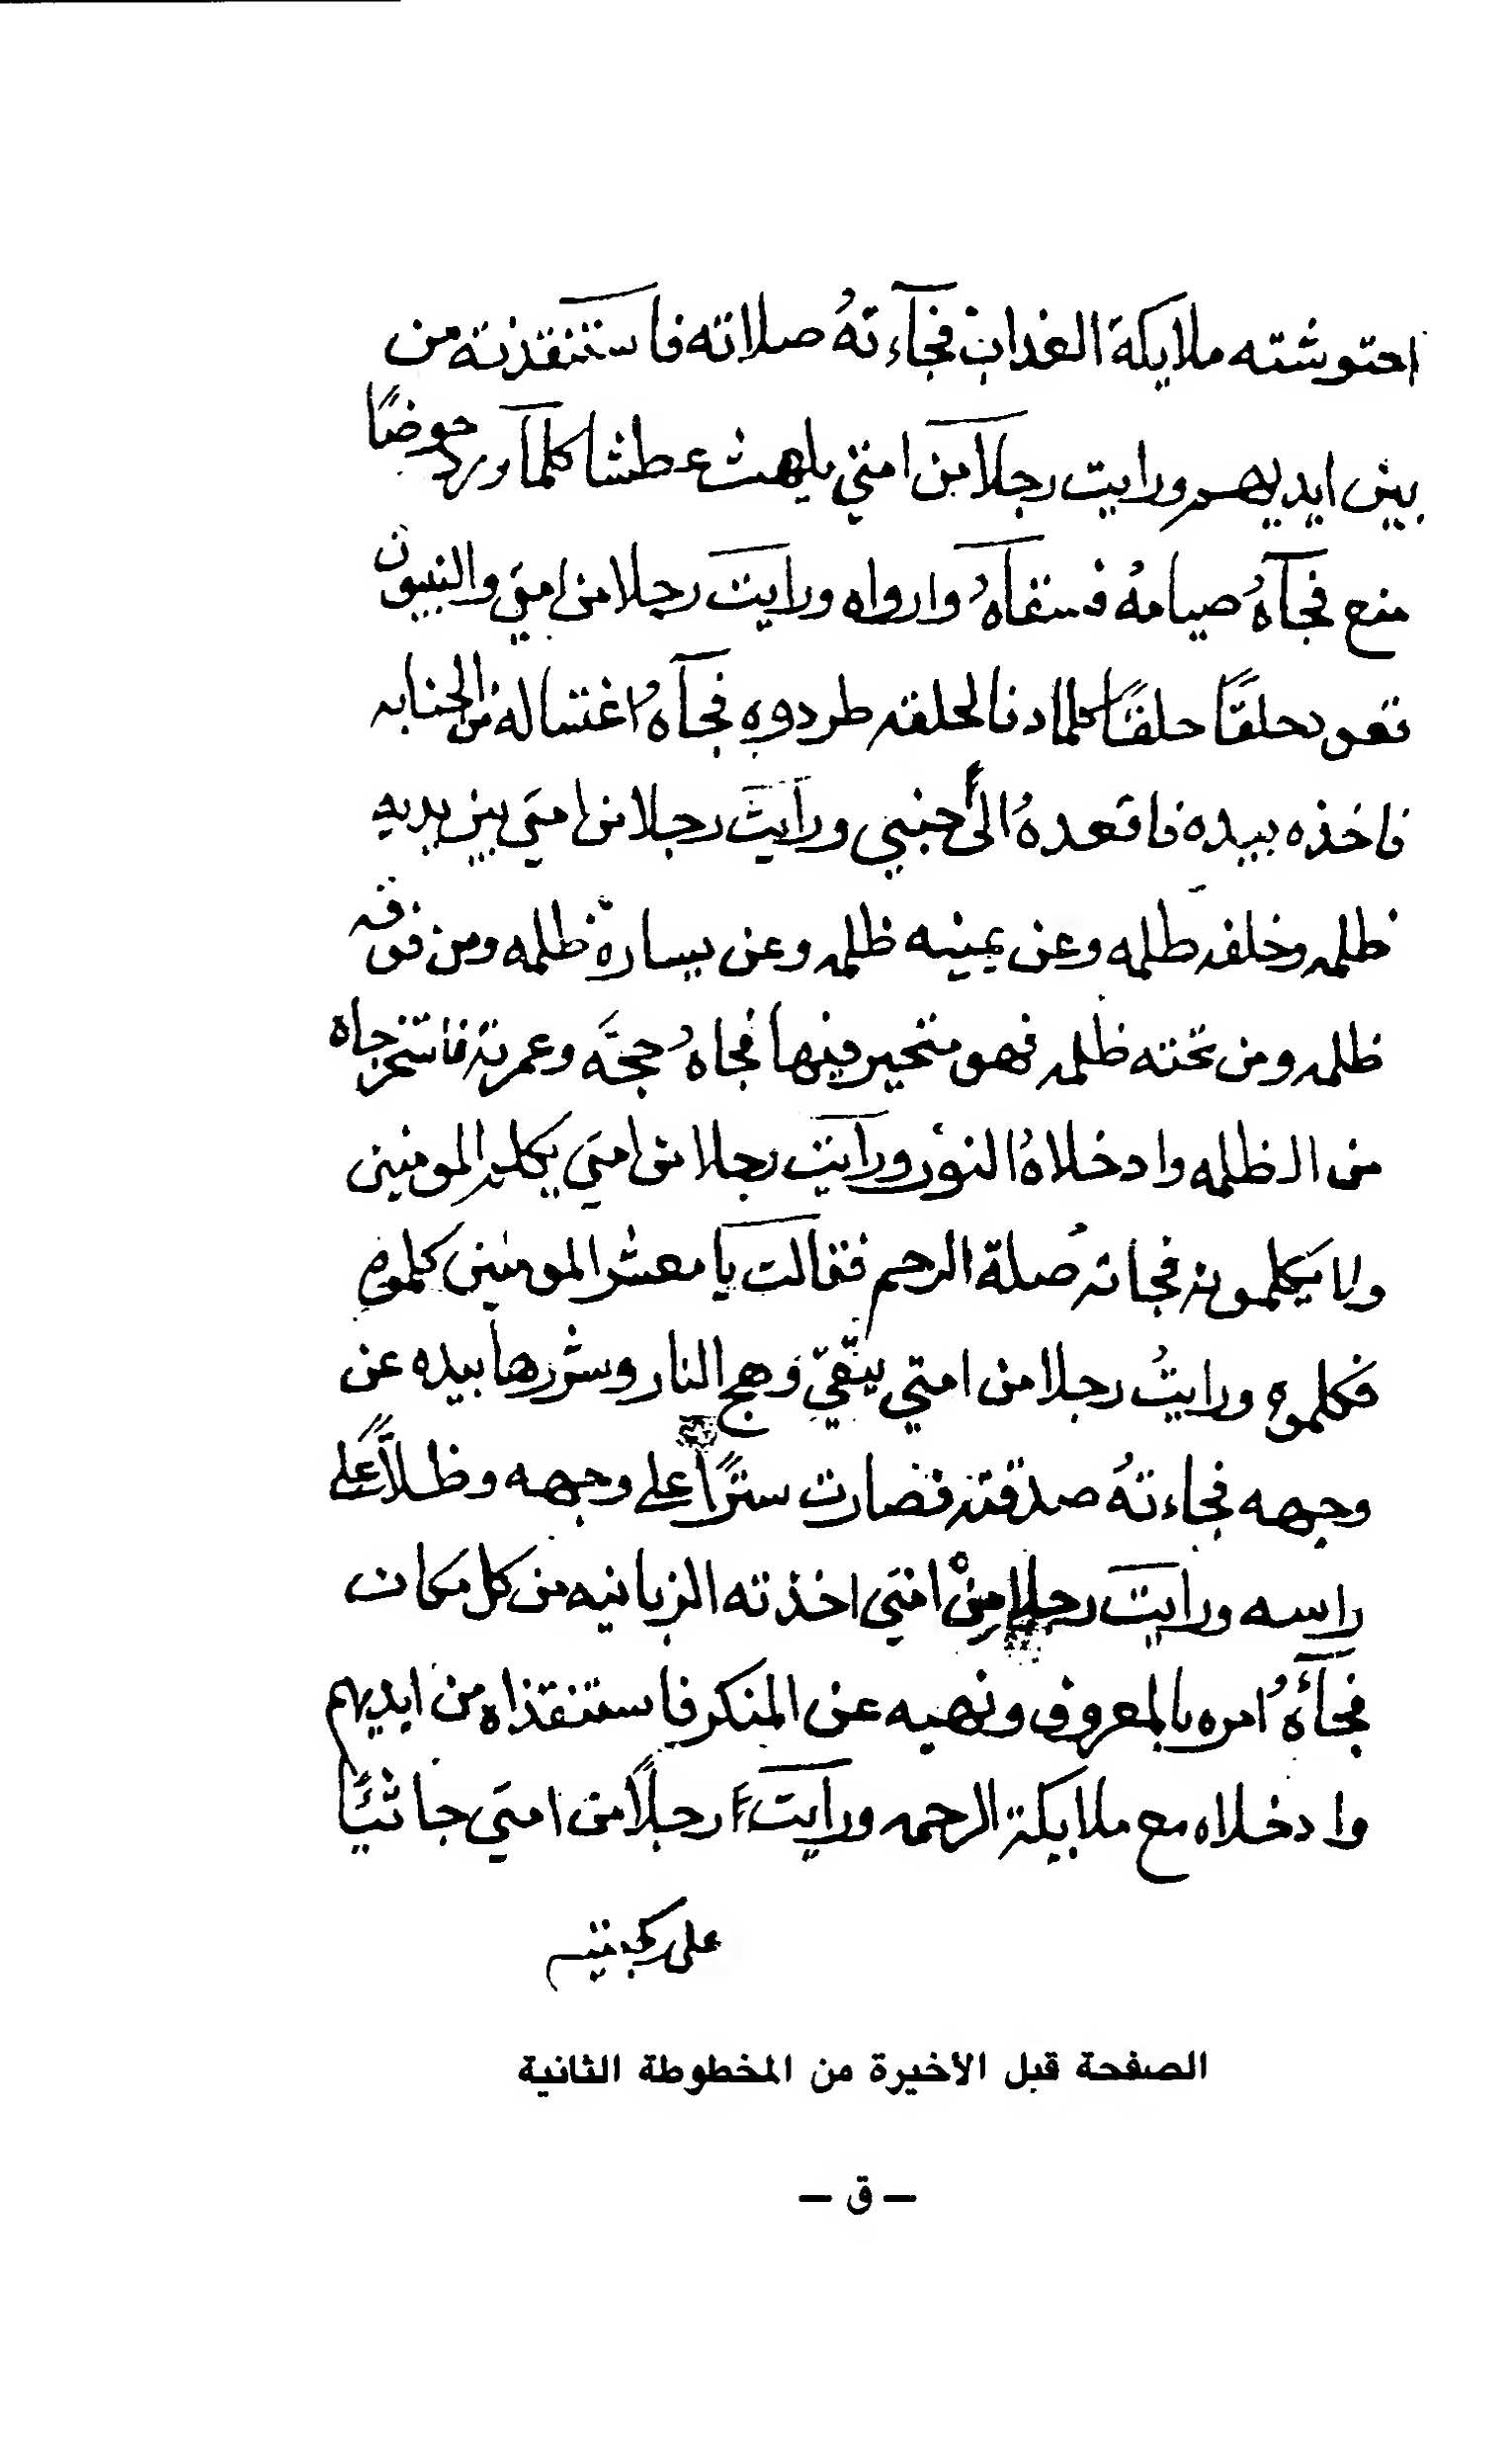 احتوشته ملايكة العذاب فجآءتهُ صلاته فاستنقذته من
بين ايديهم ورايت رجلا من امتي يلهث عطشا كلما ورد حوضًا
منع فجآهُ صيامهُ فسقاهُ وارواه ورايت رجلا من امتي والنبيون
قعود حلقًا حلقًا كلما دنا لحلقه طردوه فجآهُ اغتساله من الجنابه
فاخذه بيده فاقعدهُ الى جنبي ورايت رجلا من امتي بين يديه
ظلمه وخلفه ظلمه وعن يمينه ظلمه وعن يساره ظلمه ومن فوقه
ظلمه ومن تحته ظلمه فهو متحير فيها فجاهُ حجَّه وعمرته فاستخرجاه
من الظلمه وادخلاهُ النور ورايت رجلا من امتي يكلم المومنين
ولا يكلمونه فجاته صلة الرحم فقالت يا معشر المومنين كلموه
فكلموه ورايتُ رجلا من امتي يتّقي وهج النار وشررها بيده عن
وجهه فجاءتهُ صدقته فصارت سترًا على وجهه وظلاًّ على
راسه ورايت رجلا منْ امتي اخذته الزبانيه من كل مكان
فجآهُ امره بالمعروف ونهيه عن المنكر فاستنقذاه من ايديهم
وادخلاه مع ملايكة الرحمه ورايت رجلًا من امتي جاثيًا
على ركبتيه
الصفحة قبل الأخيرة من المخطوطة الثانية
– ق –